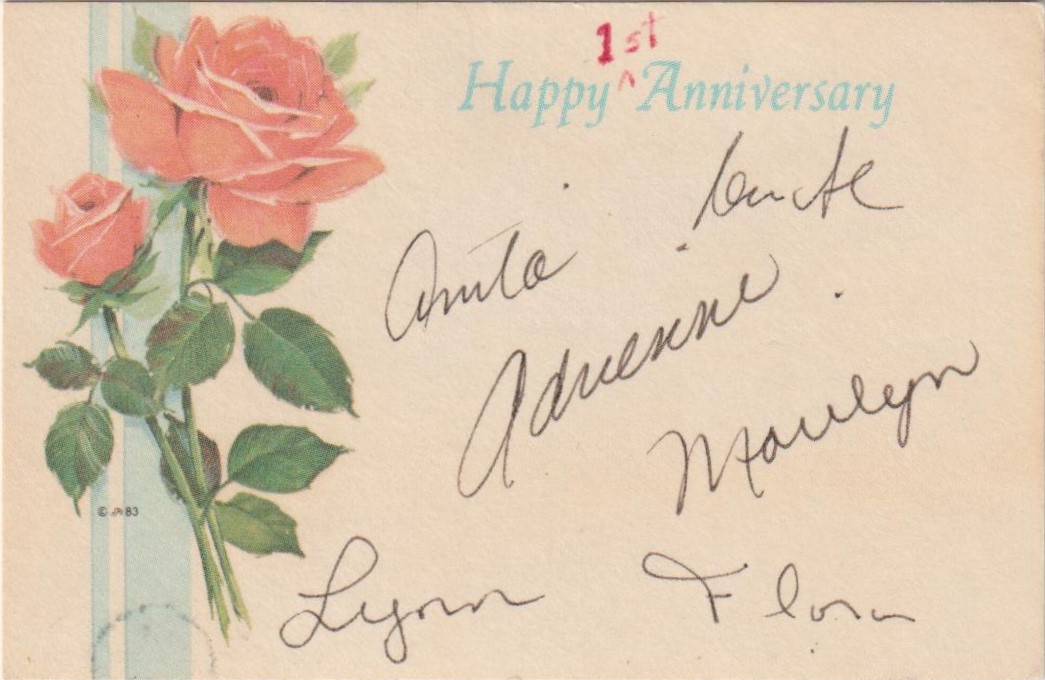 1st
Happy ^ Anniversary
Anita
Adrienne
Marilyn
Lynn Flora